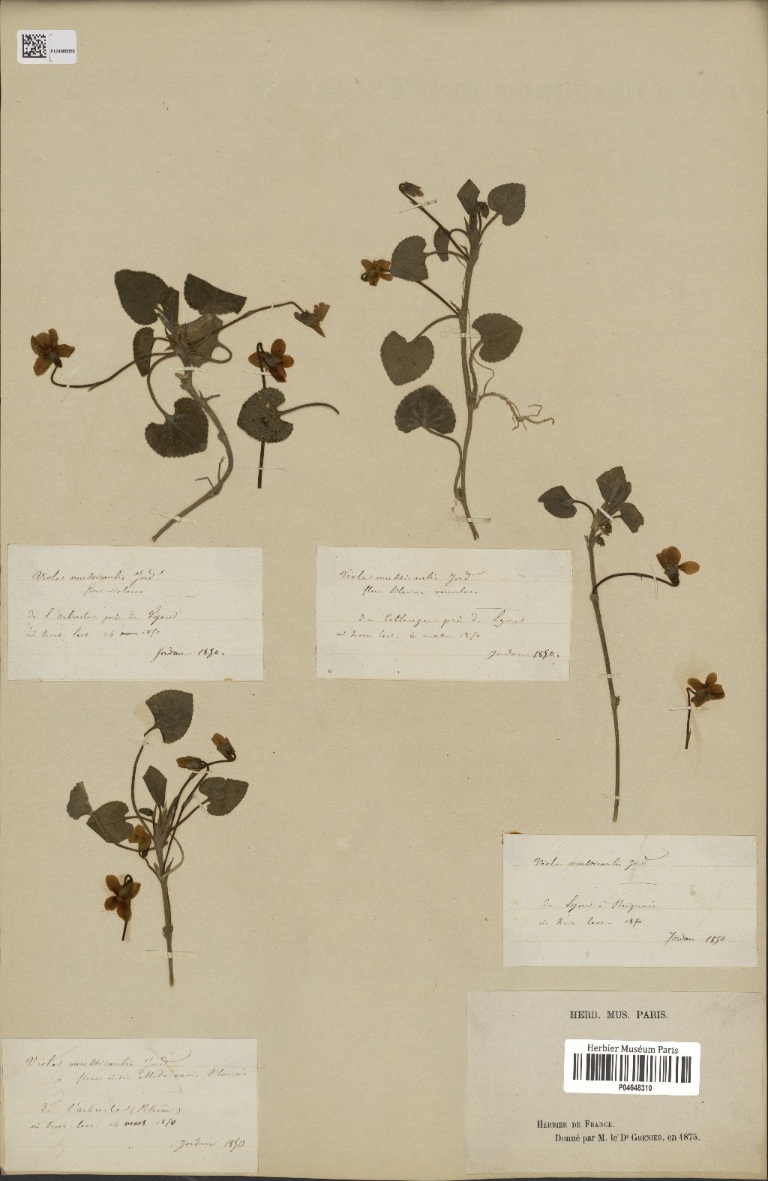 Viola multicaulis Jord.
flore violaceo
de l'arbresle près de Lyon
in hort. cult. 14 mars 1850
Jordan 1850.
Viola multicaulis Jord.
flore
de Collonges près de Lyon
in hort. cult. 6 mars 1850
Jordan 1850.
Viola multicaulis Jord.
de Lyon à
in hort. cult. 1850
Jordan 1850
Viola multicaulis Jord.
de l'arbresle (Rhône)
in hort. cult. 14 mars 1850
Jordan 1850
HERB. MUS. PARIS.
Herbier Muséum Paris
P04648310
HERBIER DE FRANCE.
Donné par M. le Dr GRENIER, en 1875.